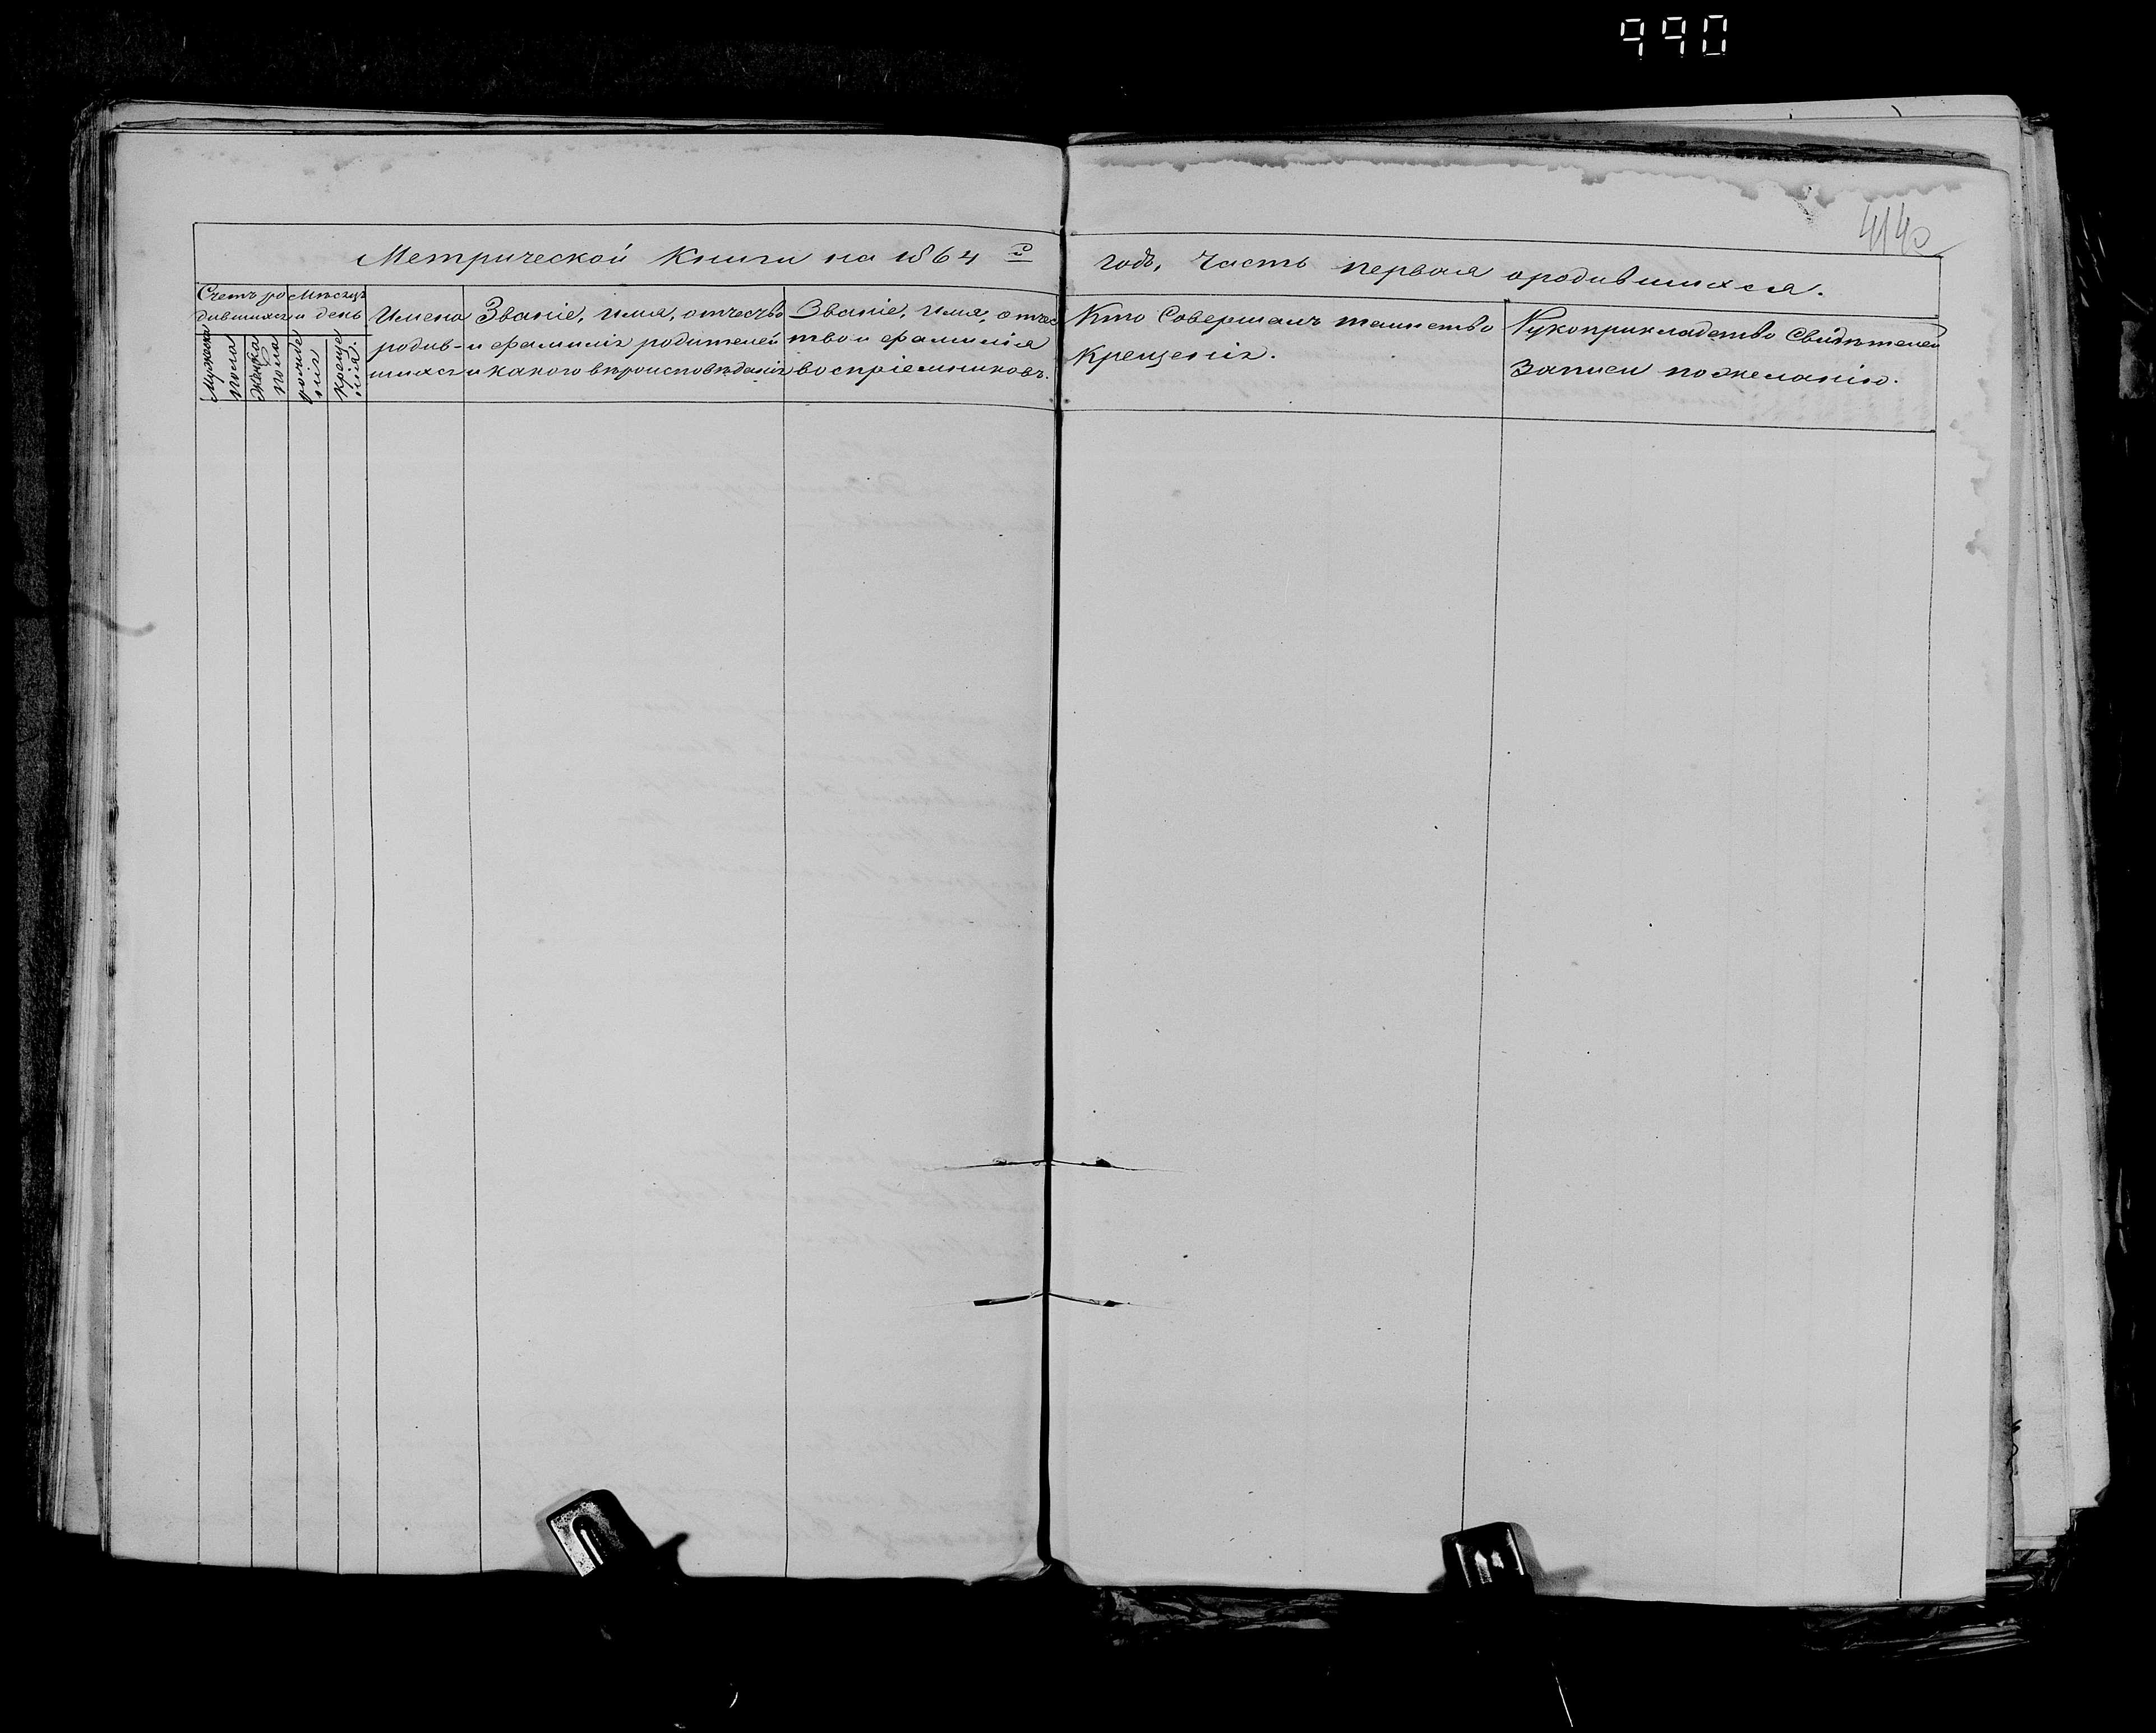 990
4140
Метрической Книги на 1864 й
годъ, Часть первая ородившихся.
Счетъ ро
дившихся
Мужеска
пола
Женска
пола
Мѣсяцъ
и день
рожде
нія
Креще
нія.
Имена
родив-
шихся
Званіе, имя, отчество
и фамилія родителей
и какого вѣроисповѣданія
Званіе, имя, отчес
тво и фамилія
воспріемниковъ.
Кто Совершалъ таинство
Крещенія.
Рукоприкладство Свидѣтелей
Записи по желанію.